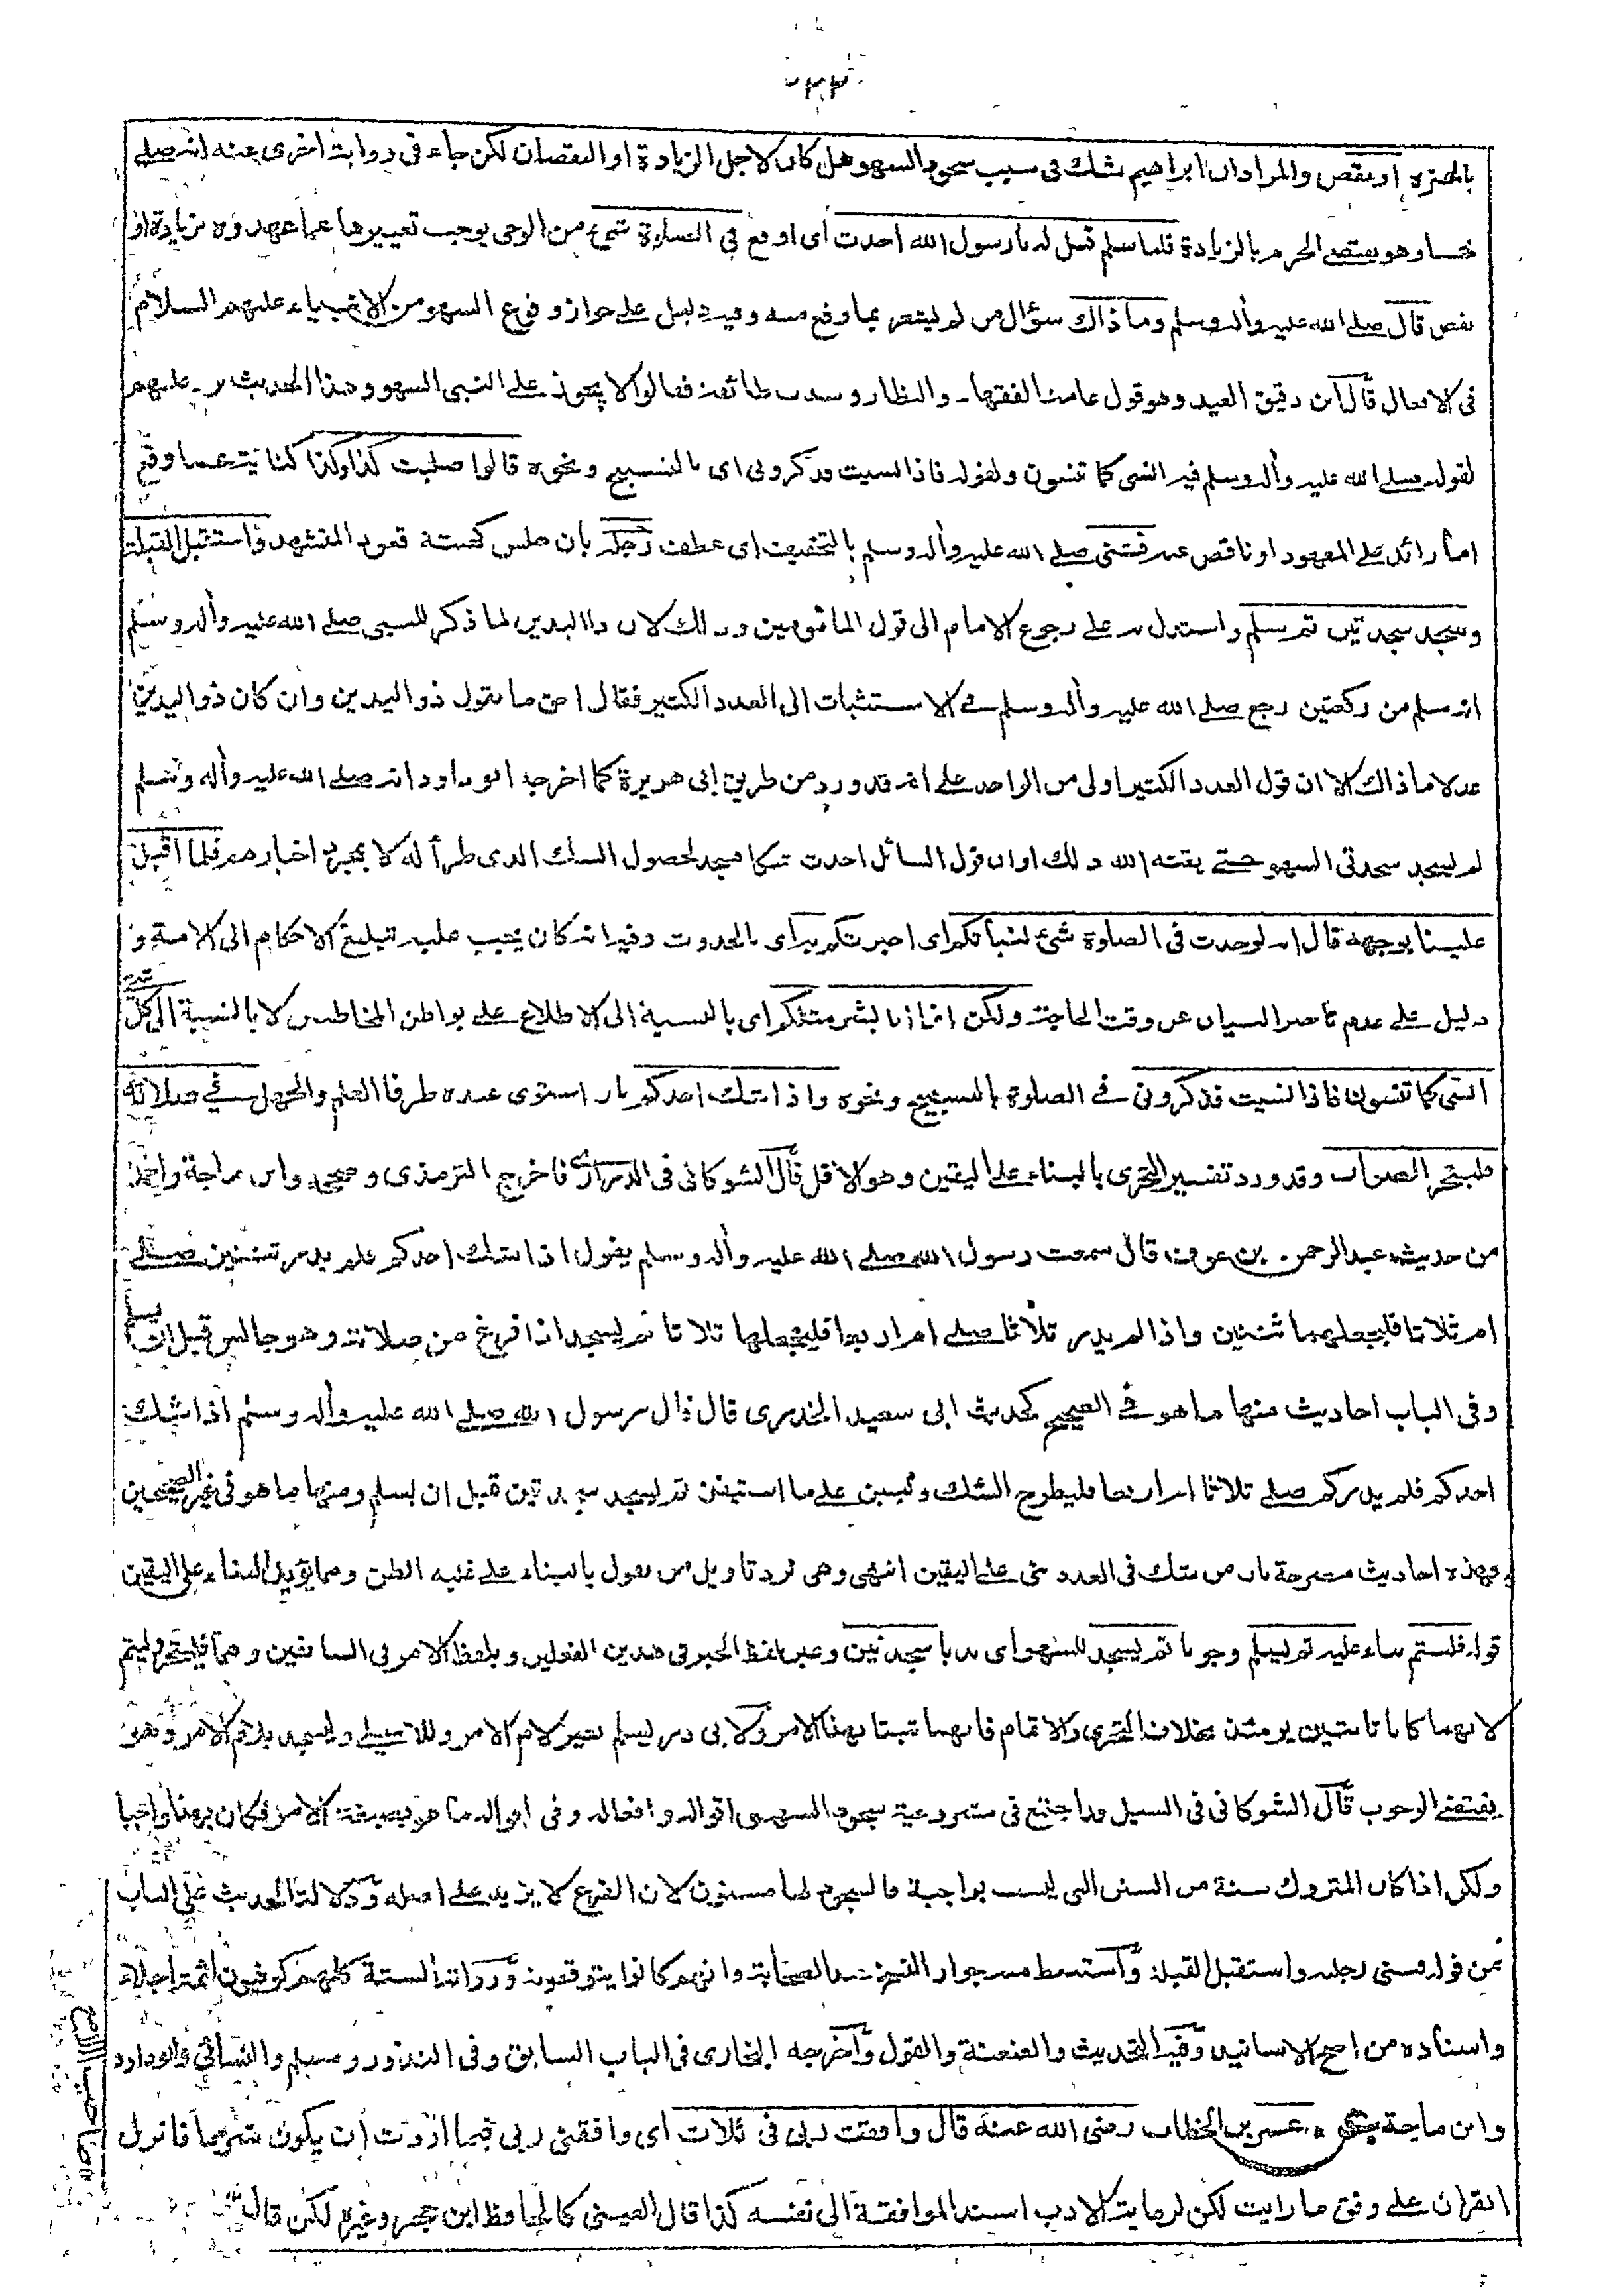 ٢٣٣
بالهمزة او نقص والمراد ان ابراهيم شك فى سبب سجود السهو هل كان لاجل الزيادة او النقصان لكن جاء فى رواية اخرى عنه انه صلے
خمسا وهو يقتضے الجزم بالزيادة فلما سلم قيل له يا رسول الله احدث أى اوقع فى الصلوة شئ من الوحى يوجب تغييرها عما عهدوه بزيادة او
نقص قال صلے الله عليه وأله وسلم وما ذاك سؤال من لم يشعر بما وقع منه وفيه دليل علے جواز وقوع السهو من الانبياء عليهم السلام
فى الافعال قال ابن دقيق العيد وهو قول عامة الفقهاء والنظار وشذت طائفة فقالوا لا يجوز علے النبى السهو وهذا الحديث يرد عليهم
لقوله صلے الله عليه وأله وسلم فيه انسى كما تنسون ولقوله فاذا نسيت فذكرونى اى بالتسبيح ونحوه قالوا صليت كذا وكذا كناية عما وقع
اما زائد علے المعهود او ناقص عنه فثنى صلے الله عليه وأله وسلم بالتخفيف اى عطف رجله بان جلس كهيئة قعود المتشهد واستقبل القبلة
وسجد سجدتين ثم سلم واستدل به على رجوع الامام الى قول المأمومين وذلك لان ذا اليدين لما ذكر للنبى صلے الله عليه وأله وسلم
انه سلم من ركعتين رجع صلے الله عليه وأله وسلم فے الاستثبات الى العدد الكثير فقال احق ما يقول ذو اليدين وان كان ذو اليدين
عدلا ماذاك الا ان قول العدد الكثير اولى من الواحد على انه قد ورد من طريق ابى هريرة كما اخرجه ابو داود انه صلے الله عليه وأله وسلم
لم يسجد سجدتى السهو حتے يقنه الله ذلك او ان قول السائل احدث شكا فسجد لحصول الشك الذى طرأ له لا بمجرد اخبارهم فلما اقبل
علينا بوجهه قال انه لو حدث فى الصلوة شئ لنبأتكم اى اخبرتكم به اى بالحدوث وفيه انه كان يجب عليه تبليغ الاحكام الى الامة و
دليل علے عدم تاخير البيان عن وقت الحاجة ولكن انما انا بشر مثلكم اى بالنسبة الى الاطلاع علے بواطن المخاطبين لا بالنسبة الى كل شئ
انسى كما تنسون فاذا نسيت فذكرونى فے الصلوة بالتسبيح ونحوه واذا شك احدكم بان استوى عنده طرفا العلم والجهل فے صلاته
فليتحر الصواب وقد ورد تفسير التحرى بالبناء على اليقين وهو الاقل قال الشوكانى فى الدرارى فاخرج الترمذى وصححه وابن ماجة واحمد
من حديث عبد الرحمن بن عوف قال سمعت رسول الله صلے الله عليه وأله وسلم يقول اذا شك احدكم فلم يدر ثنتين صلے
ام ثلاثا فليجعلهما ثنتين واذا لم يدر ثلاثا صلے ام اربعا فليجعلها ثلاثا ثم يسجد اذا فرغ من صلاته وهو جالس قبل ان يسلم
وفى الباب احاديث منها ما هو فے الصحيح كحديث ابى سعيد الخدرى قال قال رسول الله صلے الله عليه وأله وسلم اذا شك
احدكم فلم يدر كم صلے ثلاثا ام اربعا فليطرح الشك وليبن على ما استيقن ثم يسجد سجدتين قبل ان يسلم ومنها ما هو فى غير الصحيحين
وهذه احاديث مصرحة بان من شك فى العدد بنى على اليقين انتهى وهى ترد تاويل من يقول بالبناء على غلبة الظن ومما يؤيد البناء على اليقين
قوله فليتم بناء عليه ثم ليسلم وجوبا ثم يسجد للسهو اى ندبا سجدتين وعبر بلفظ الخبر فى هذين الفعلين وبلفظ الامر فى السابقين وهما فليتحر وليتم
لانهما كانا ثابتين يومئذ بخلاف التحرى والاتمام فانهما ثبتا بهذا الامر ولابى ذر ليسلم بغير لام الامر وللاصيلے وليسجد بلام الامر وهو
يقتضے الوجوب قال الشوكانى فى السيل وقد اجتمع فى مشروعية سجود السهو اقواله وافعاله وفى اقواله ما هو بصيغة الامر فكان بهذا واجبا
ولكن اذا كان المتروك سنة من السنن التى ليست بواجبة فالسجود لها مسنون لان الفرع لا يزيد على اصله ودلالة الحديث على الباب
من قوله فثنى رجله واستقبل القبلة واستنبط منه جواز النسخ عند الصحابة وانهم كانوا يتوقعونه ورواته الستة كلهم كوفيون ائمة اجلاء
واسناده من اصح الاسانيد وفيه التحديث والعنعنة والقول واخرجه البخارى فى الباب السابق وفى النذور ومسلم والنسائى وابو داود
وابن ماجة عن عمر بن الخطاب رضى الله عنه قال وافقت ربى فى ثلاث اى وافقنى ربى فيما اردت ان يكون شرعا فانزل
القرأن على وفق ما رايت لكن لرعاية الادب اسند الموافقة الى نفسه كذا قال العينى كالحافظ ابن حجر وغيره لكن قال